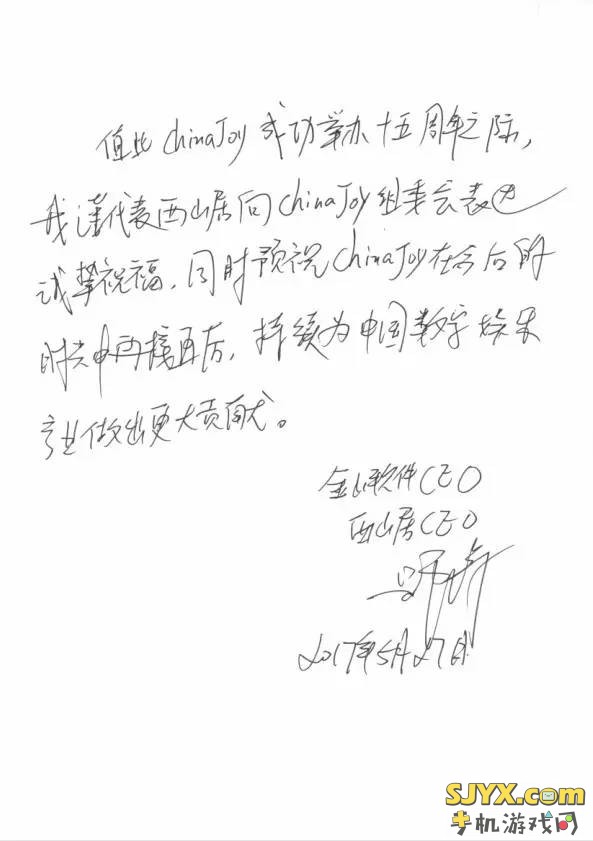 值此ChinaJoy成功举办十五周年之际,
我谨代表西山居向ChinaJoy组委会表达
诚挚祝福,同时预祝ChinaJoy在今后的
时光中再接再厉,持续为中国数字娱乐
产业做出更大贡献。
金山软件CEO
西山居CEO
2017年5月27日
SJYX.com
手机游戏网